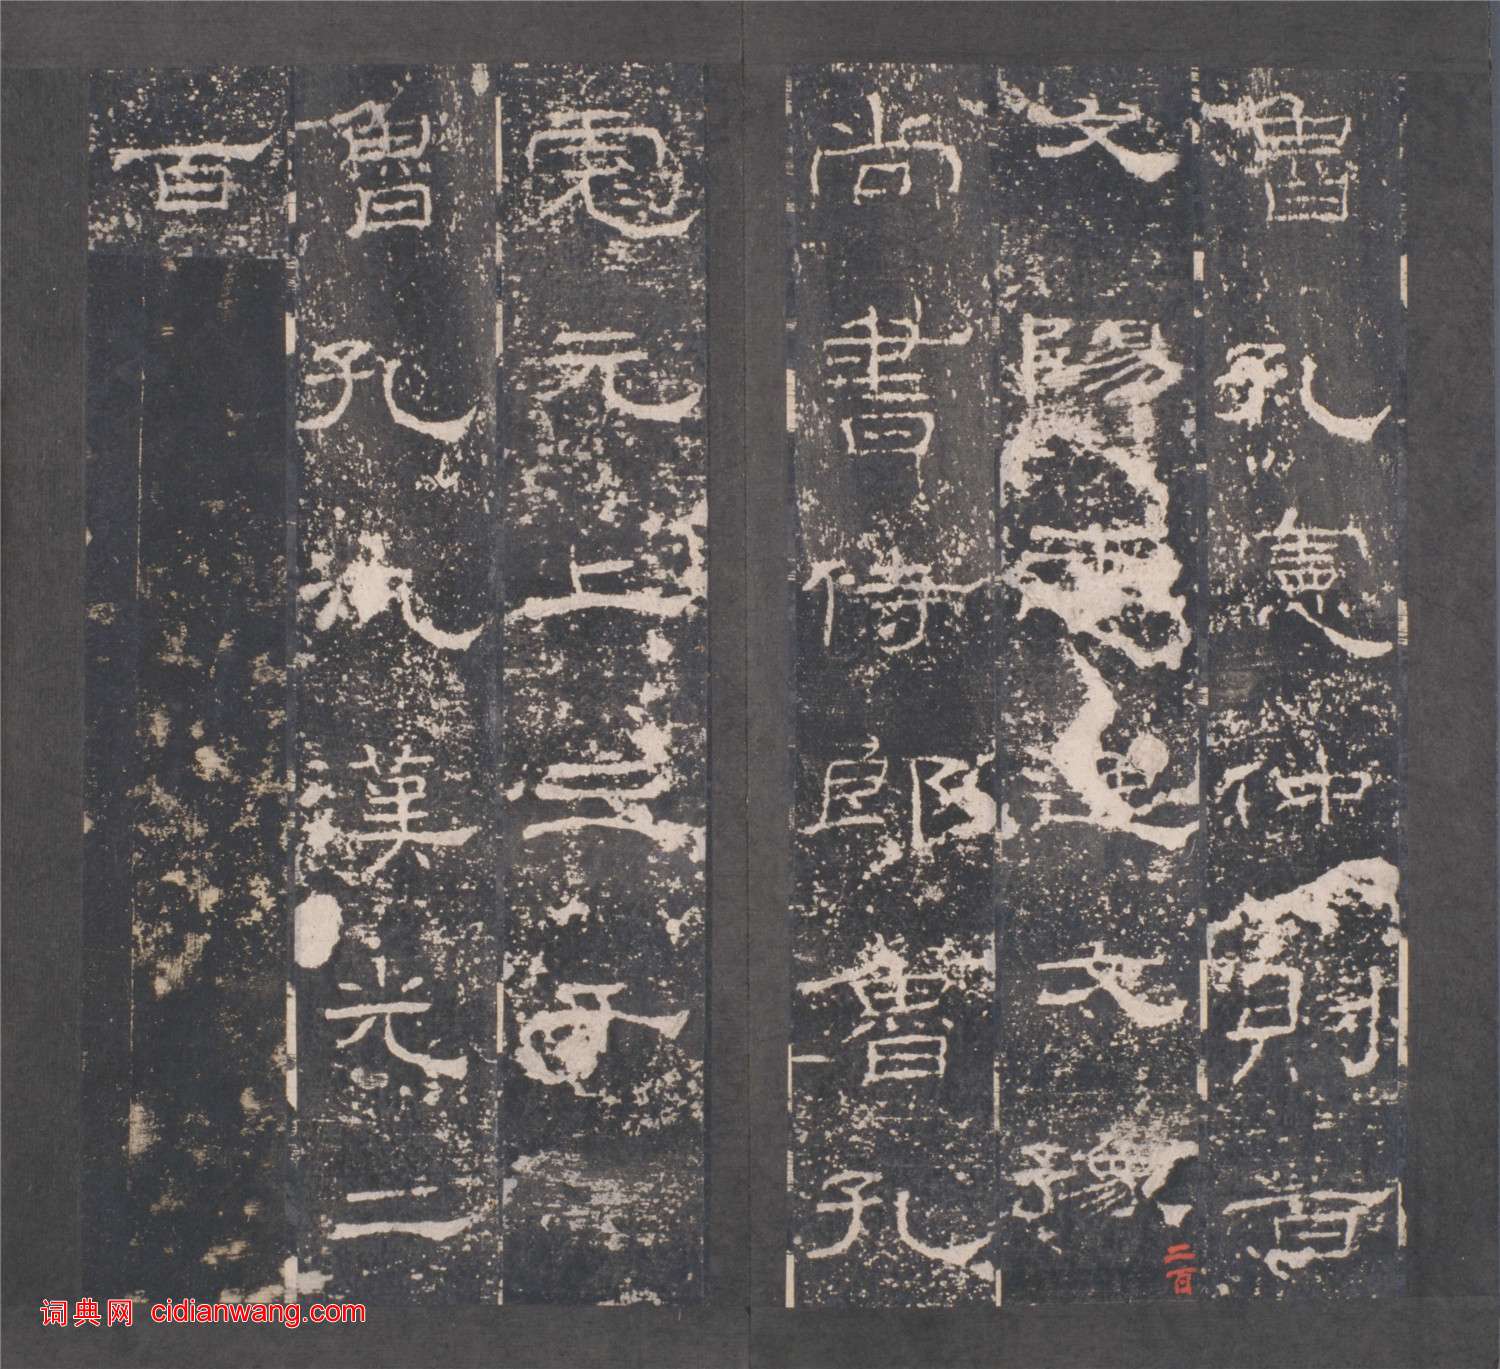 魯孔憲仲則百
文陽文豫
二百
尚書侍郎魯孔
彪元上三千
魯孔汎漢光二
百
词典网 cidianwang.com